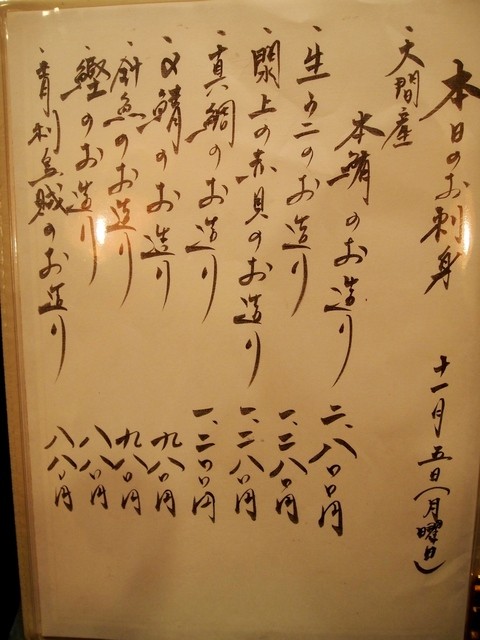 本日のお刺身 十一月五日(月曜日)
・大間産
本鮪のお造り 二、八〇〇円
・生うにのお造り 一、二八〇円
・閖上の赤貝のお造り 一、二八〇円
・真鯛のお造り 一、二〇〇円
・〆鯖のお造り 九八〇円
・針魚のお造り 九八〇円
・鰹のお造り 八八〇円
・青利烏賊のお造り 八八〇円